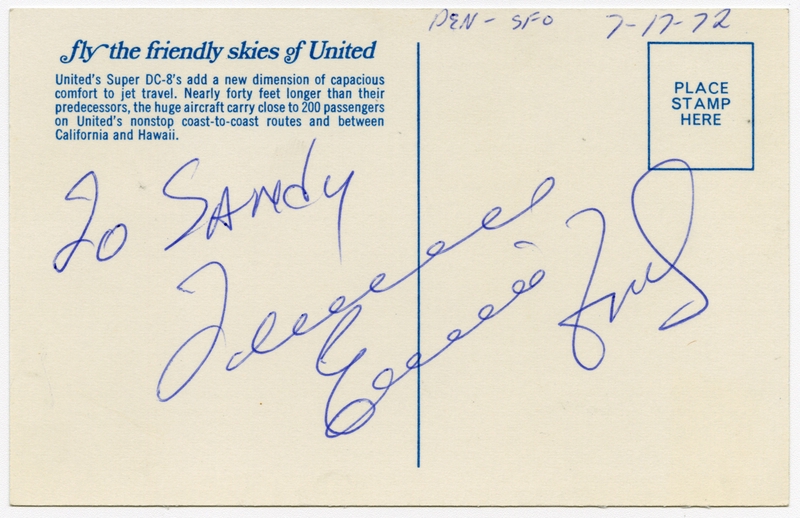 DEN - SFO 7-17-72
fly the friendly skies of United
United's Super DC-8's add a new dimension of capacious
comfort to jet travel. Nearly forty feet longer than their
predecessors, the huge aircraft carry close to 200 passengers
on United's nonstop coast-to-coast routes and between
California and Hawaii.
PLACE
STAMP
HERE
To SANdy
Tennessee
Ernie Ford